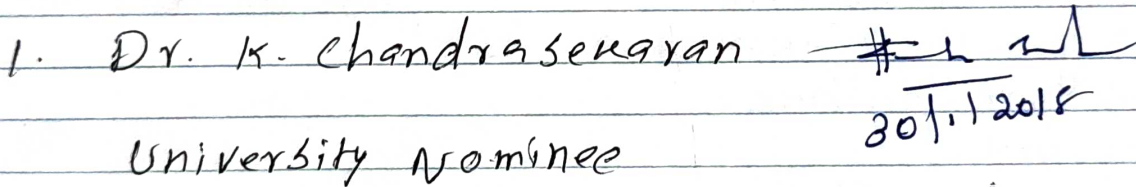 1. Dr. K. Chandrasekaran
30/1/2018
University Nominee